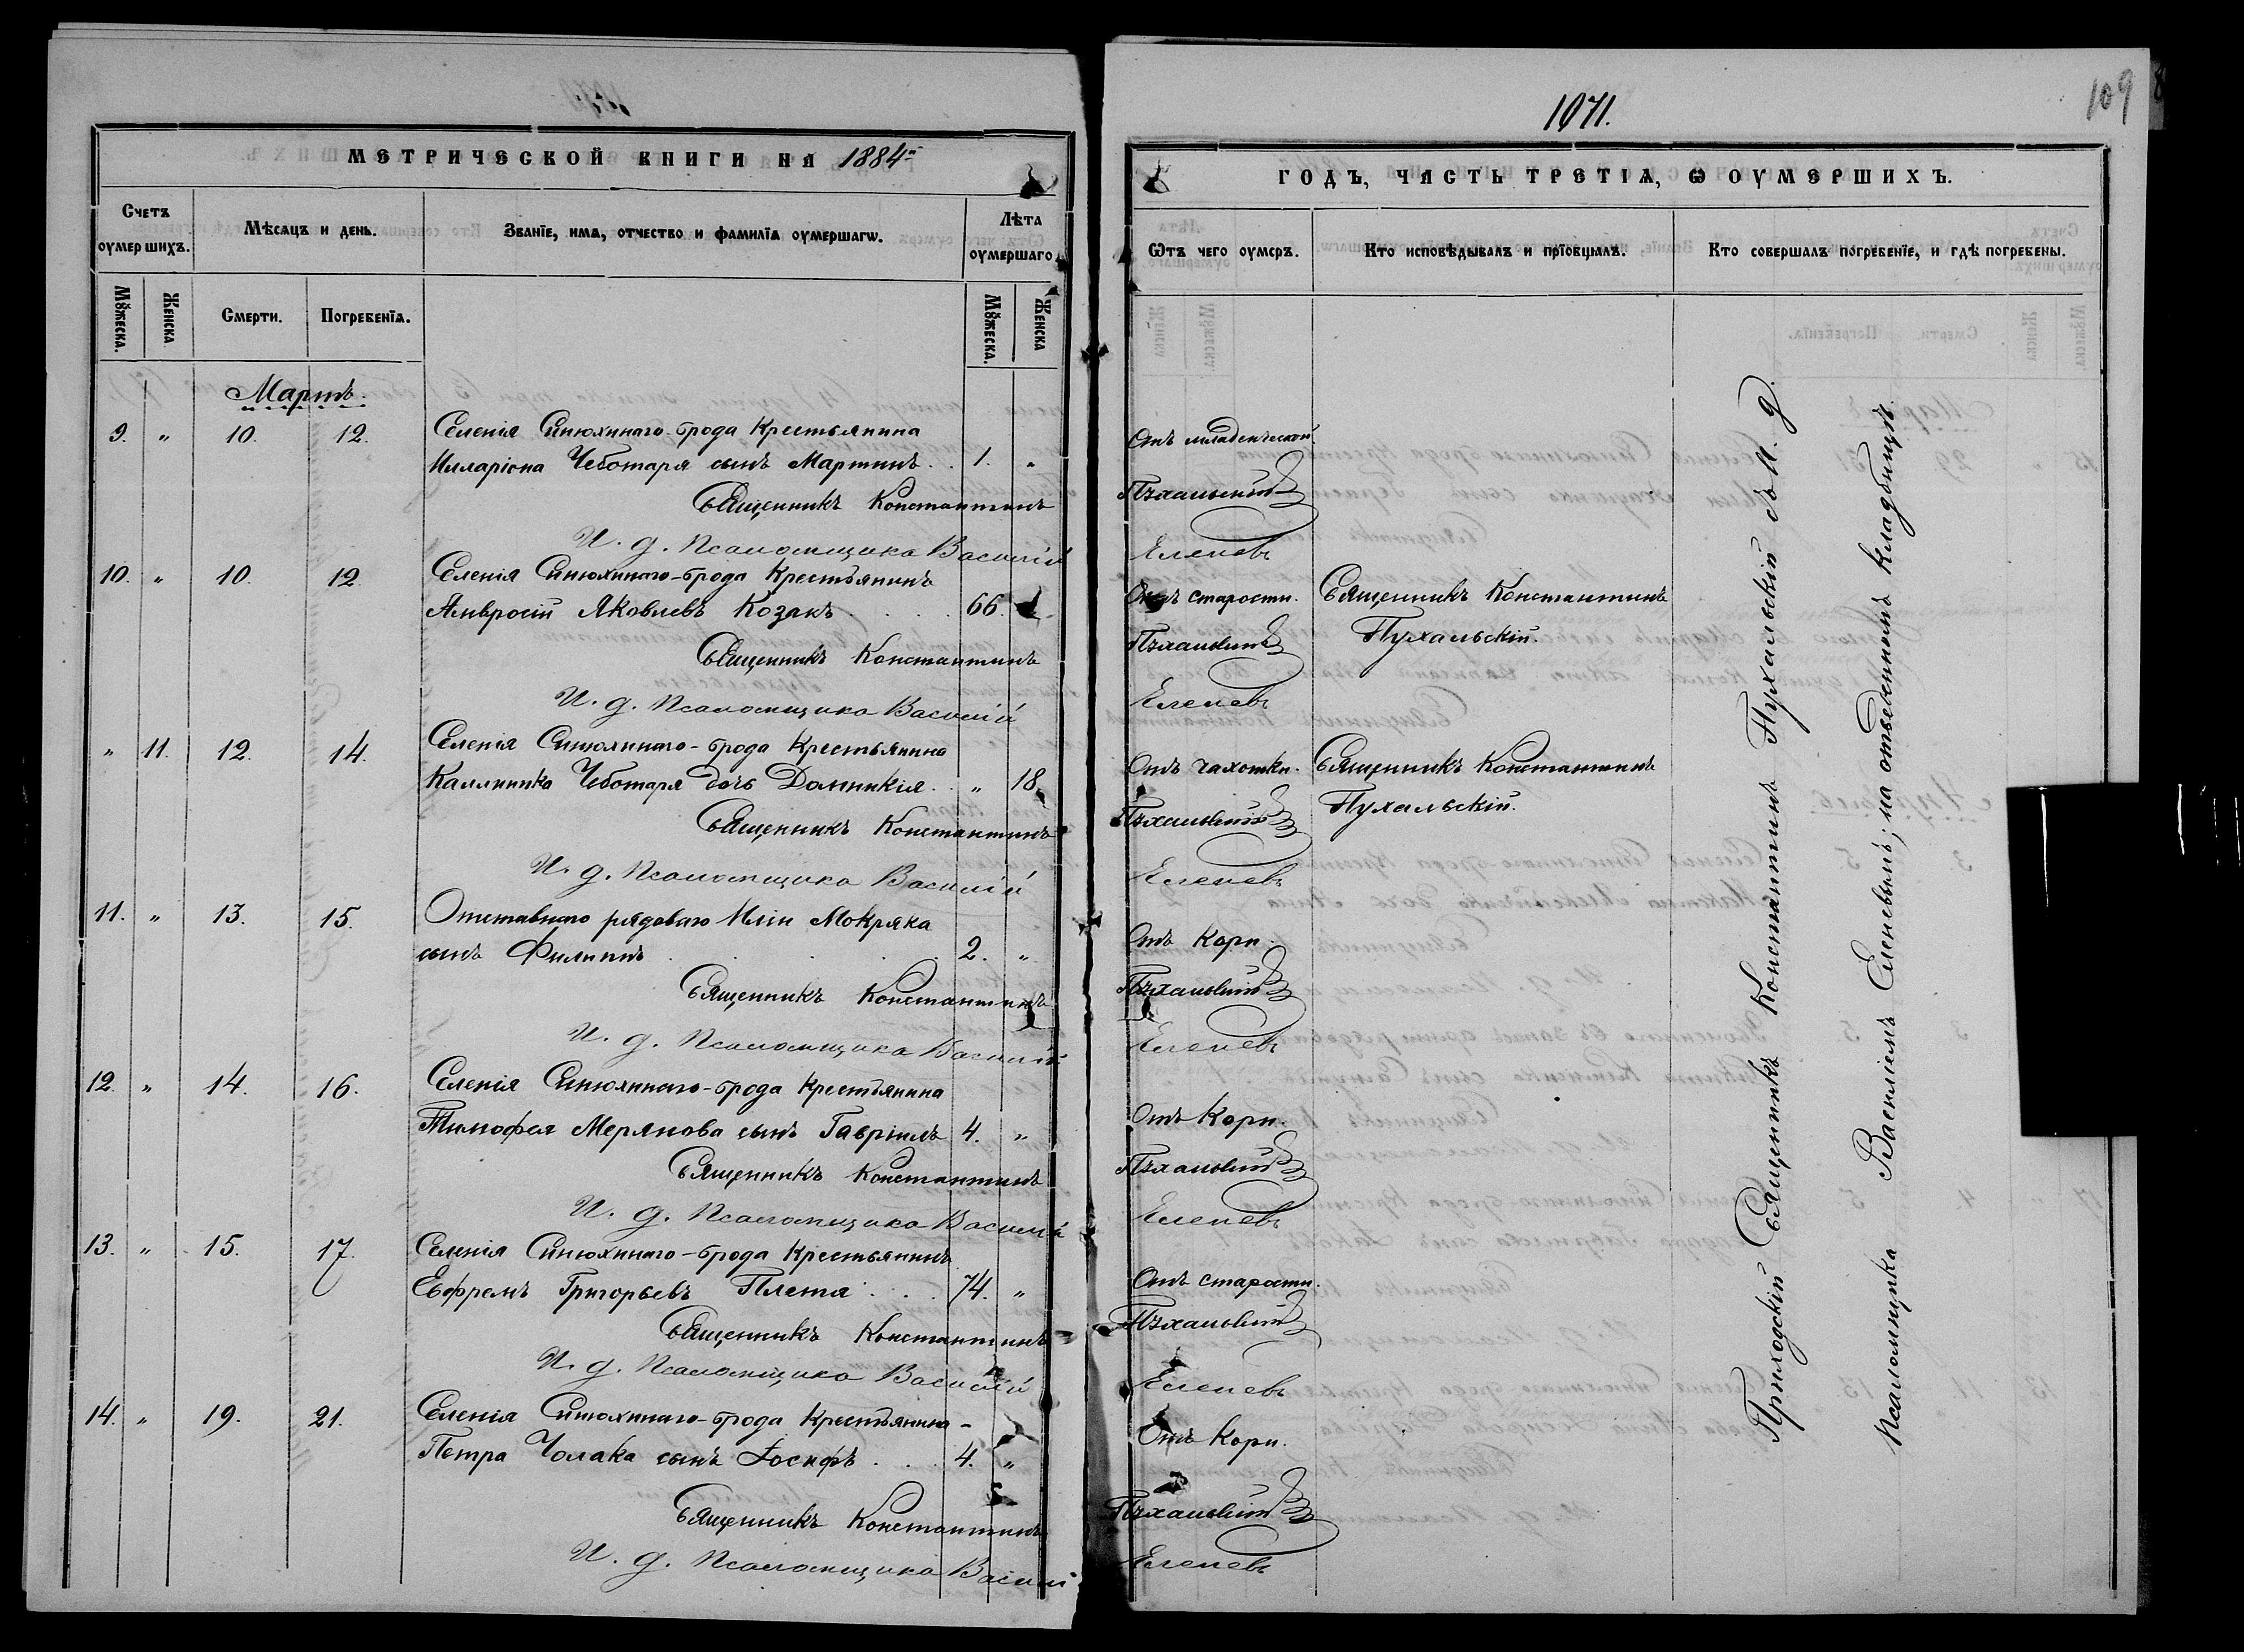 МЕТРИЧЕСКОЙ КНИГИ НА 1884й
Счетъ оумершихъ.
Мѣсяцъ и день.
Званїе, имя, отчество и фамилїя оумершагѡ.
Лѣта оумершаго
Мꙋжеска.
Женска
Смерти.
Погребенїя.
Мꙋжеска.
Женска
Мартъ.
9. " 10. 12. Селенія Синюхинаго-брода Крестьянина
Илларіона Чеботаря сынъ Мартинъ. . 1. "
Священникъ Константинъ
И. д. Псаломщика Василій
10. " 10. 12. Селенія Синюхинаго-брода Крестьянинъ
Амвросій Яковлевъ Козакъ . . . . 66.
Священникъ Константинъ
И. д. Псаломщика Василій
" 11. 12. 14. Селенія Синюхинаго-брода Крестьянина
Каллиника Чеботаря дочь Домникія. . " 18.
Священникъ Константинъ
И. д. Псаломщика Василій
11. " 13. 15. Отставнаго рядоваго Иліи Мокряка
сынъ Филиппъ . . . . 2. "
Священникъ Константинъ
И. д. Псаломщика Василій
12. " 14. 16. Селенія Синюхинаго-брода Крестьянина
Тимофея Мерянова сынъ Гавріилъ 4. "
Священникъ Константинъ
И. д. Псаломщика Василій
13. " 15. 17. Селенія Синюхинаго-брода Крестьянинъ
Ефремъ Григорьевъ Плета . . . 74. "
Священникъ Константинъ
И. д. Псаломщика Василій
14. " 19. 21. Селенія Синюхинаго-брода Крестьянина-
Петра Чолака сынъ Іосифъ . . . 4. "
Священникъ Константинъ
И. д. Псаломщика Василій
1071.
109
ГОДЪ, ЧАСТЬ ТРЕТІѦ, Ѡ ОУМЕРШИХЪ.
Ѿтъ чего оумєръ.
Кто исповѣдывалъ и прїобщалъ.
Кто совершалъ погребенїе, и гдѣ погребены.
Отъ младенческой.
Пухальскій
Еленевъ
Отъ старости. Священникъ Константинъ
Пухальскій.
Пухальскій
Еленевъ
Отъ чахотки. Священникъ Константинъ
Пухальскій.
Пухальскій
Еленевъ
Отъ Кори.
Пухальскій
Еленевъ
Отъ Кори.
Пухальскій
Еленевъ
Отъ старости.
Пухальскій
Еленевъ
Отъ Кори.
Пухальскій
Еленевъ
Приходскій Священникъ Константинъ Пухальскій съ И. д.
Псаломщика Василіемъ Еленевымъ, на отведенномъ кладбищѣ.